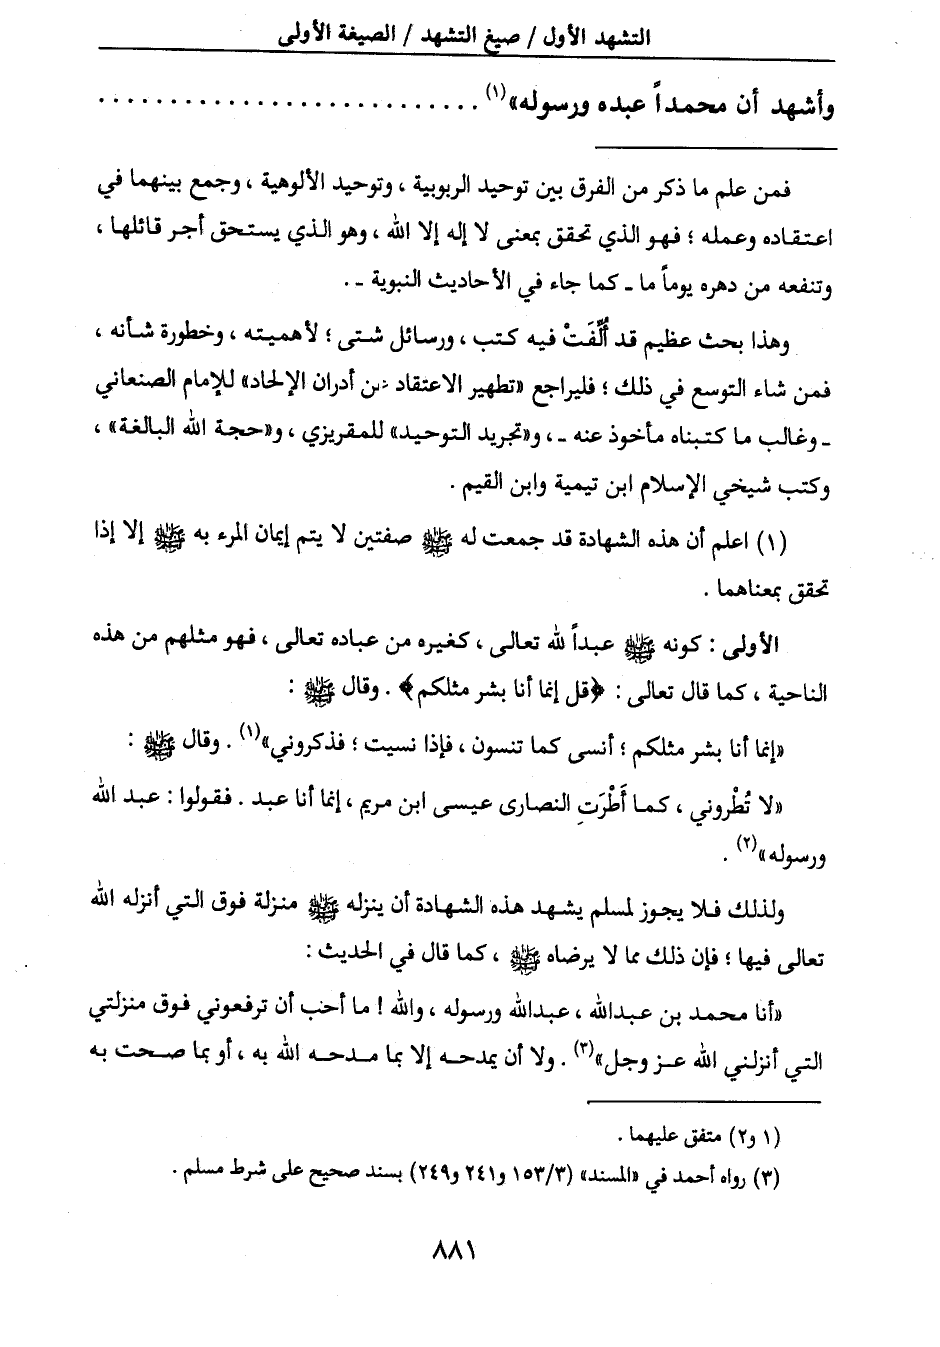 التشهد الأول / صيغ التشهد / الصيغة الأولى
وأشهد أن محمداً عبده ورسوله»(١) . . . . . . . . . . . . . . . . . . . . . . . . . . .
فمن علم ما ذكر من الفرق بين توحيد الربوبية ، وتوحيد الألوهية ، وجمع بينهما في
اعتقاده وعمله ؛ فهو الذي تحقق بمعنى لا إله إلا الله ، وهو الذي يستحق أجر قائلها ،
وتنفعه من دهره يوماً ما ـ كما جاء في الأحاديث النبوية ـ .
وهذا بحث عظيم قد أُلِّفَتْ فيه كتب ، ورسائل شتى ؛ لأهميته ، وخطورة شأنه ،
فمن شاء التوسع في ذلك ؛ فليراجع «تطهير الاعتقاد من أدران الإلحاد» للإمام الصنعاني
ـ وغالب ما كتبناه مأخوذ عنه ـ ، و«تجريد التوحيد» للمقريزي ، و«حجة الله البالغة» ،
وكتب شيخي الإسلام ابن تيمية وابن القيم .
(١) اعلم أن هذه الشهادة قد جمعت له ﷺ صفتين لا يتم إيمان المرء به ﷺ إلا إذا
تحقق بمعناهما .
الأولى : كونه ﷺ عبداً لله تعالى ، كغيره من عباده تعالى ، فهو مثلهم من هذه
الناحية ، كما قال تعالى : ﴿قل إنما أنا بشر مثلكم﴾ . وقال ﷺ :
«إنما أنا بشر مثلكم ؛ أنسى كما تنسون ، فإذا نسيت ؛ فذكروني»(١) . وقال ﷺ :
«لا تُطْروني ، كما أَطْرَتِ النصارى عيسى ابن مريم ، إنما أنا عبد . فقولوا : عبد الله
ورسوله»(٢) .
ولذلك فلا يجوز لمسلم يشهد هذه الشهادة أن ينزله ﷺ منزلة فوق التي أنزله الله
تعالى فيها ؛ فإن ذلك مما لا يرضاه ﷺ ، كما قال في الحديث :
«أنا محمد بن عبدالله ، عبدالله ورسوله ، والله ! ما أحب أن ترفعوني فوق منزلتي
التي أنزلني الله عز وجل»(٣) . ولا أن يمدحه إلا بما مدحه الله به ، أو بما صحت به
(١ و٢) متفق عليهما .
(٣) رواه أحمد في «المسند» (١٥٣/٣ و٢٤١ و٢٤٩) بسند صحيح على شرط مسلم .
٨٨١